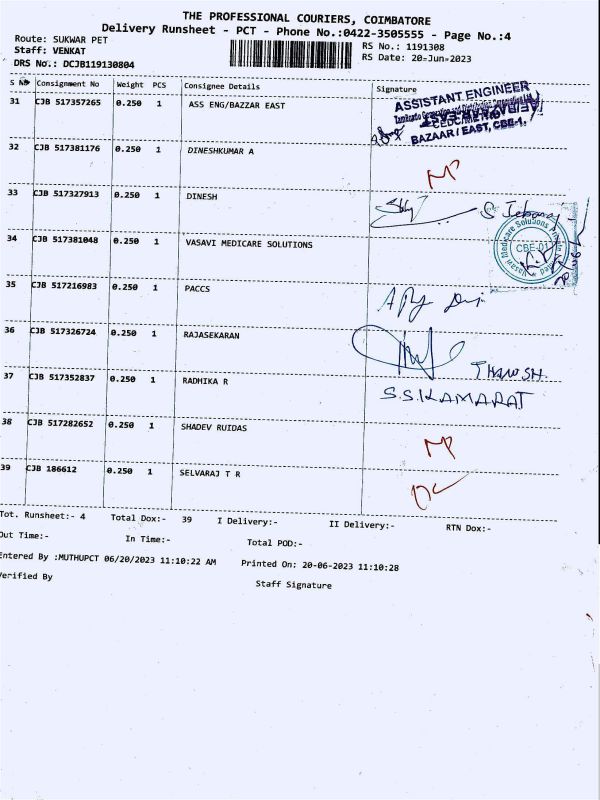 THE PROFESSIONAL COURIERS, COIMBATORE
Delivery Runsheet - PCT - Phone No.:0422-3505555 - Page No.:4
Route: SUKWAR PET
RS No.: 1191308
Staff: VENKAT
RS Date: 20-Jun-2023
DRS No.: DCJB119130804
S No Consignment No Weight PCS Consignee Details Signature
31 CJB 517357265 0.250 1 ASS ENG/BAZZAR EAST
ASSISTANT ENGINEER
BAZAAR / EAST, CBE-1.
32 CJB 517381176 0.250 1 DINESHKUMAR A
NP
33 CJB 517327913 0.250 1 DINESH
34 CJB 517381048 0.250 1 VASAVI MEDICARE SOLUTIONS
Vasavi Medicare Solutions Private Limited
CBE-01
35 CJB 517216983 0.250 1 PACCS
36 CJB 517326724 0.250 1 RAJASEKARAN
THANOSH.
37 CJB 517352837 0.250 1 RADHIKA R
S.S.KAMARAT
38 CJB 517282652 0.250 1 SHADEV RUIDAS
NP
39 CJB 186612 0.250 1 SELVARAJ T R
Tot. Runsheet:- 4 Total Dox:- 39 I Delivery:- II Delivery:- RTN Dox:-
Out Time:- In Time:- Total POD:-
Entered By :MUTHUPCT 06/20/2023 11:10:22 AM Printed On: 20-06-2023 11:10:28
Verified By Staff Signature